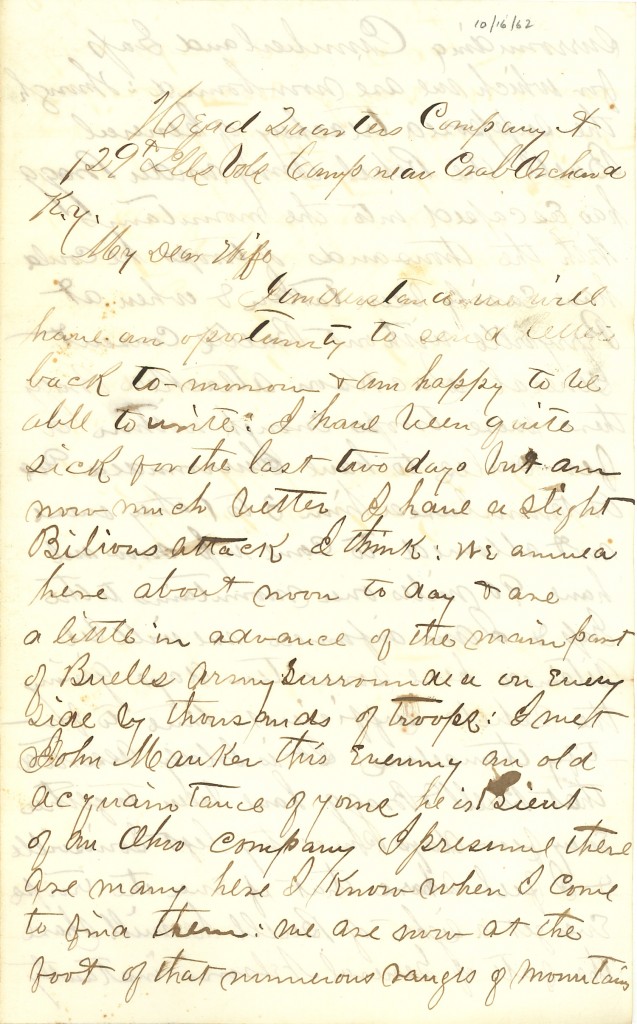 10/16/62
Head Quarters Company A
129th Ills Vols Camp near Crab Orchard
K.y.
My Dear Wife
I understand we will
have an oportunity to send letters
back to-morrow & am happy to be
able to write: I have been quite
sick for the last two days but am
now much better, I have a slight
Bilious attack I think: We arrived
here about noon to day & are
a little in advance of the main part
of Buells Army surrounded on Every
side by thousands of troops: I met
John Manker this Evening an old
acquaintance of yours he is 1st Lieut
of an Ohio company I presume there
are many here I know when I come
to find them: we are now at the
foot of that numerous ranges of mountains